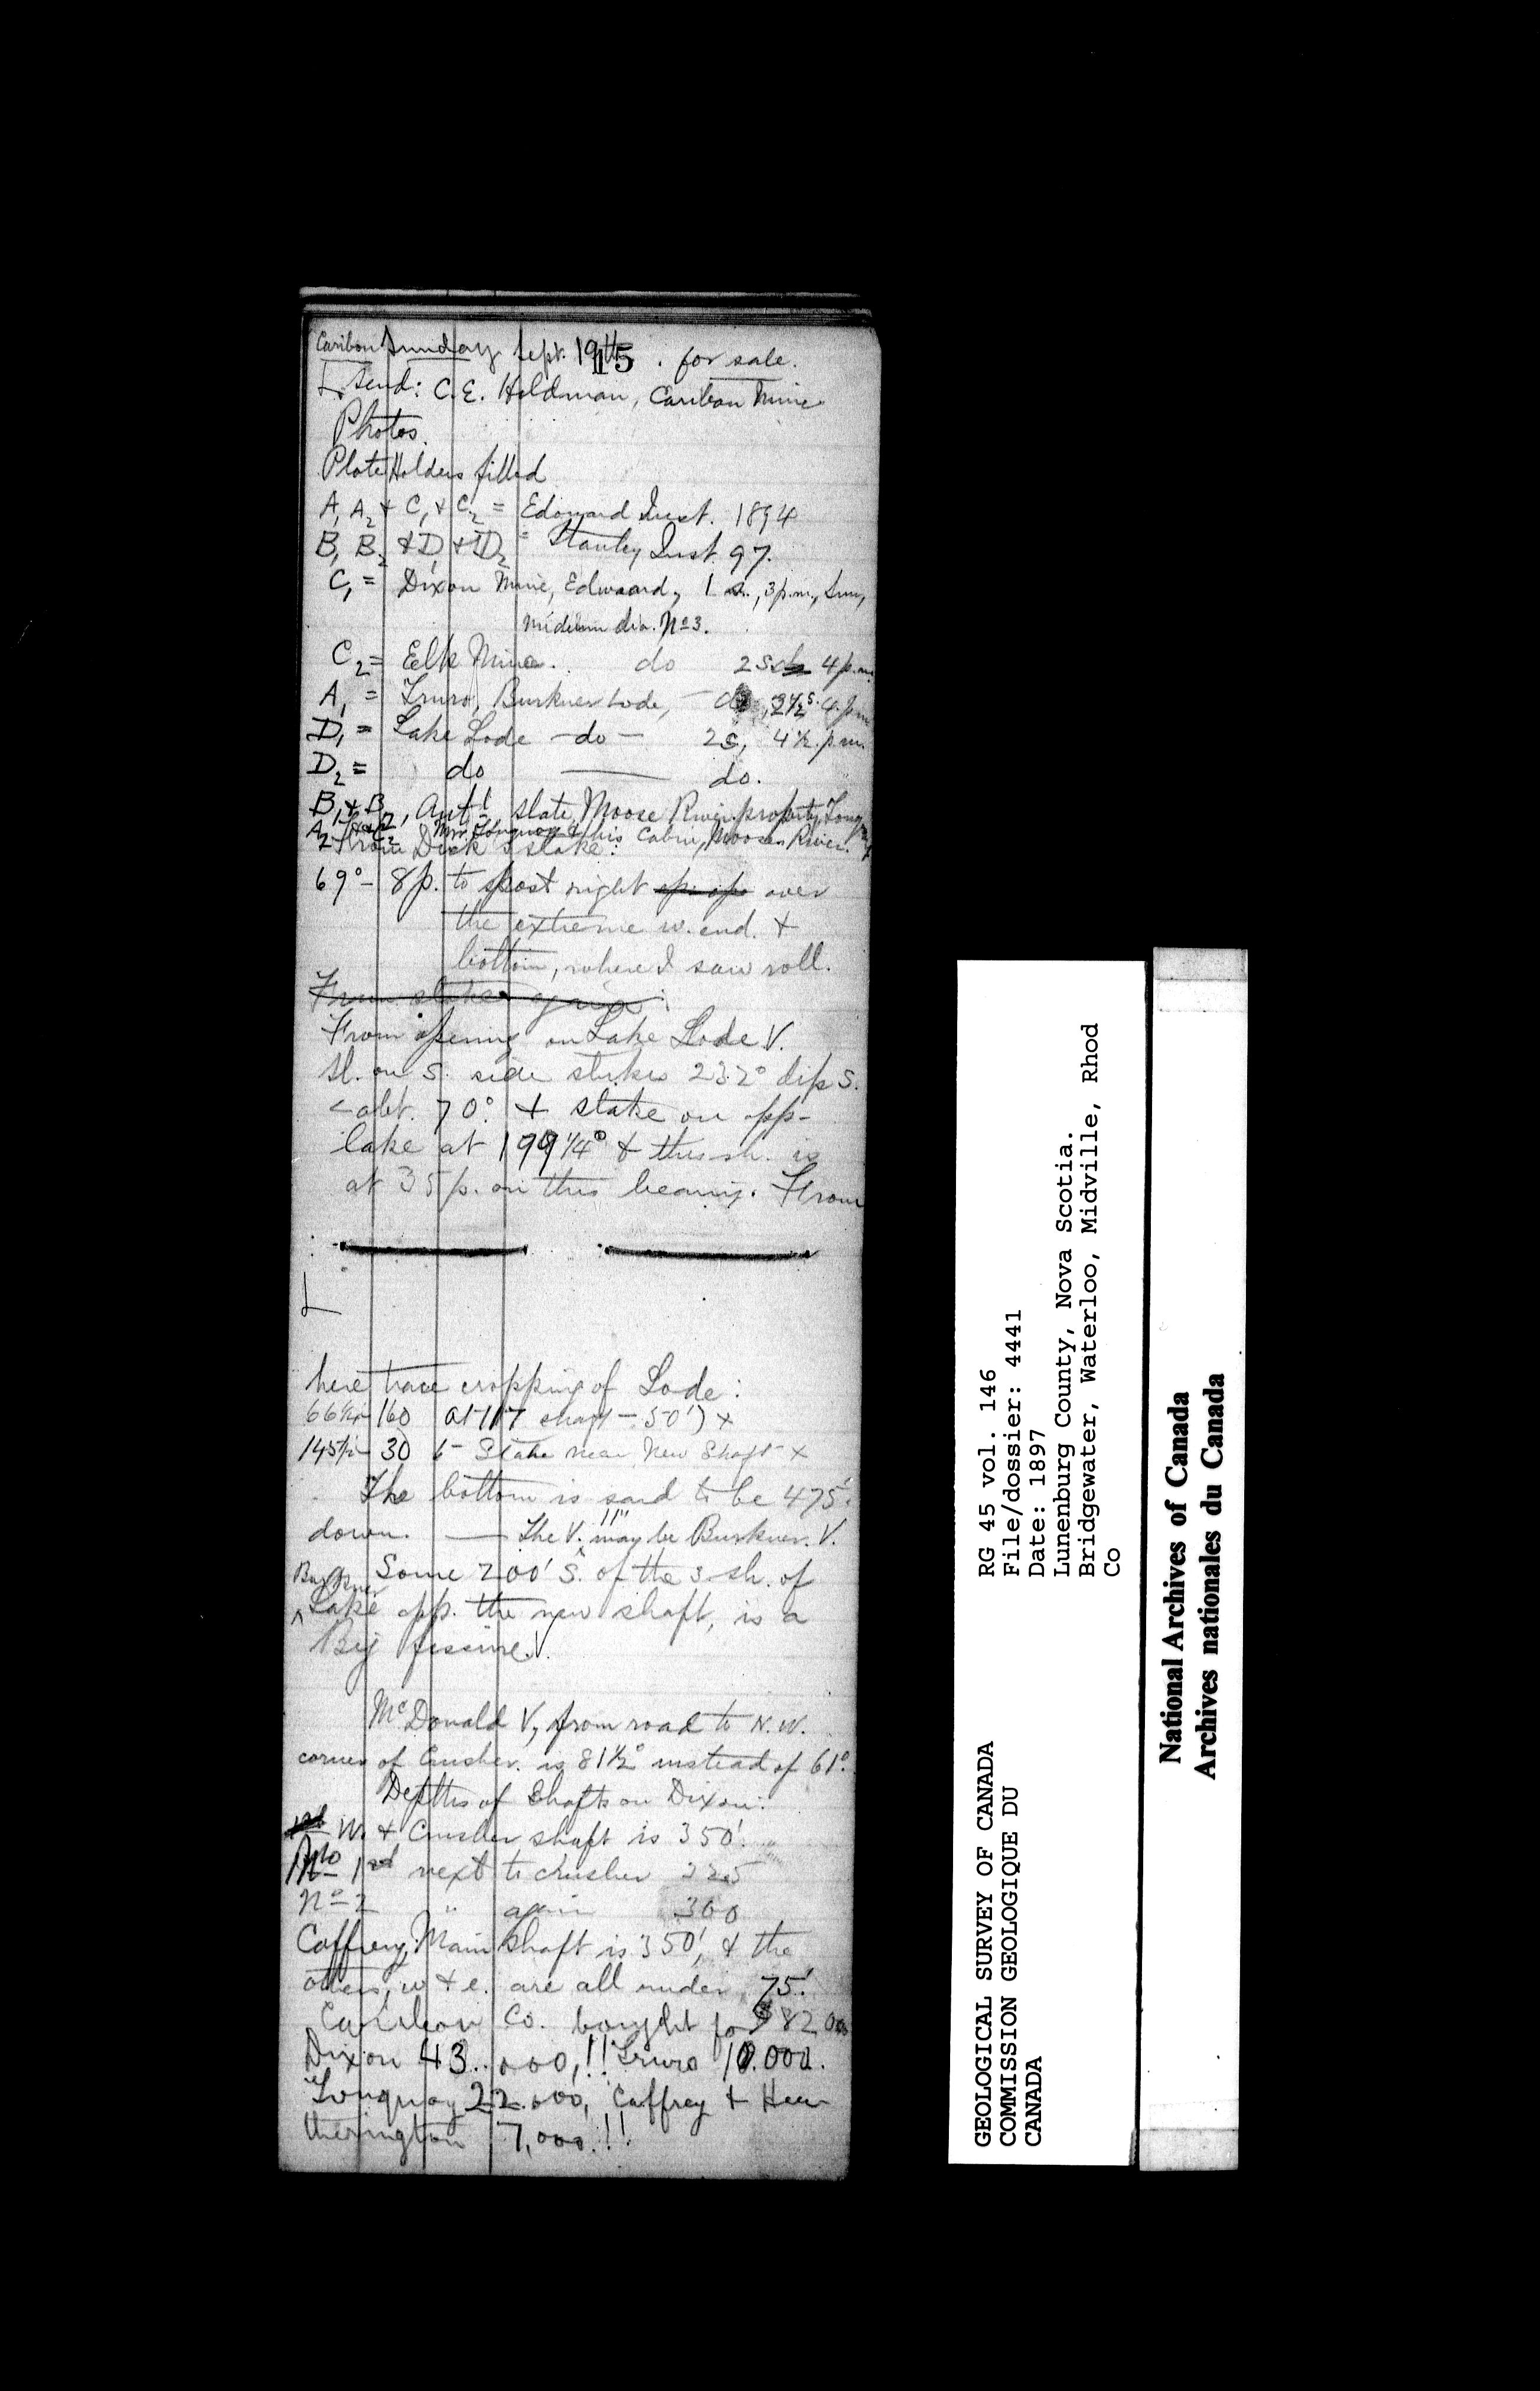 Caribou Sunday Sept. 19th 15 . for sale.
Send: C.E. Holdman, Caribou Mine
Photos.
Plate Holders filled
A, A2 + C, + C2 = Edouard Inst. 1894
B, B2 + D, + D2 = Stanley Inst. 97.
C, = Dixon Mine, Edouard, 1 s., 3 p.m., Sun,
medium dia. No 3.
C2 = Elk Mine. do 2 s. 4 p.m.
A, = Truro, Burkner Lode, — do, 2½ s. 4 p.m
D, = Lake Lode — do — 2s, 4½ p.m.
D2 = do — do.
B, + B2, Antl. slate, Moose River property, Touquoy
A2 Mr. Touquoy & his Cabin, Moose River.
From Dick's stake:
69° – 8 p. to post right over
the extreme w. end. +
bottom, where I saw roll.
From stake again:
From opening on Lake Lode V.
Sl. on S. side strikes 232° dip S.
< abt. 70°. + stake on opp-
lake at 199¼° & this sh. is
at 35 p. on this bearing. From
here trace cropping of Lode:
66½ – 160 at 117 shaft – 50') +
145½ – 30 6 – Stake near New Shaft ×
The bottom is said to be 475'
down. — The V. 11" may be Burkner. V.
Some 200' S. of the 3 sh. of
Burkner Lake opp. the new shaft, is a
Big fissure V.
McDonald V, from road to N.W.
corner of Crusher. is 81½° instead of 61°.
Depths of Shafts on Dixon:
W. + Crusher shaft is 350'.
No 1 next to crusher 225
No 2 " again 300
Caffrey, Main shaft is 350', & the
others, w + e. are all under 75'.
Co. bought for $82 000
Dixon 43..000,!! Truro 10.000.
Touquoy 22.000, Caffrey + Hea-
therington 7,000.!!
RG 45 vol. 146
File/dossier: 4441
Date: 1897
Lunenburg County, Nova Scotia.
Bridgewater, Waterloo, Midville, Rhod
Co
GEOLOGICAL SURVEY OF CANADA
COMMISSION GEOLOGIQUE DU
CANADA
National Archives of Canada
Archives nationales du Canada